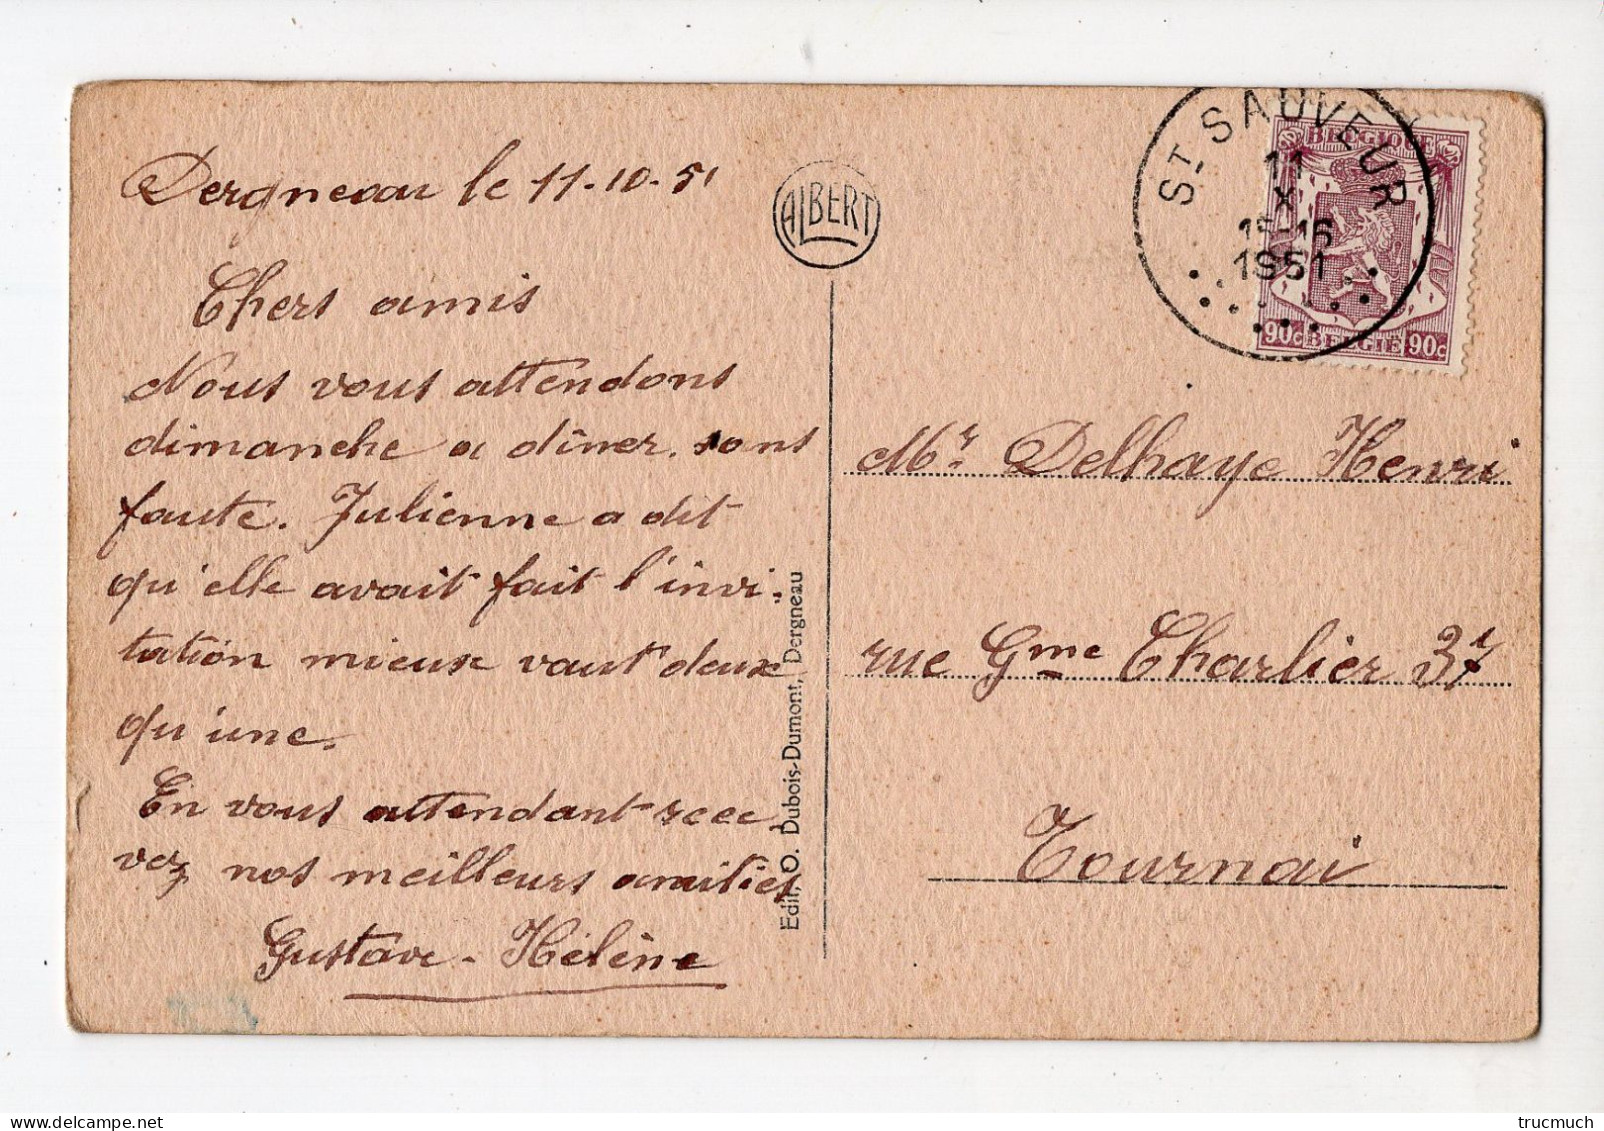 Dergneau le 11-10-51
Chers amis
Nous vous attendons
dimanche a dîner. sans
faute. Julienne a dit
qu'elle avait fait l'invi-
tation mieux vaut deux
qu'une.
En vous attendant rece
vez nos meilleurs amitiés
Gustave - Hélène
ALBERT
Edit. O. Dubois-Dumont, Dergneau
ST SAUVEUR
11
X
15-16
1951
BELGIQUE
90c BELGIE 90c
Mr Delhaye Henri
rue Gme Charlier 37
Tournai
trucmuch